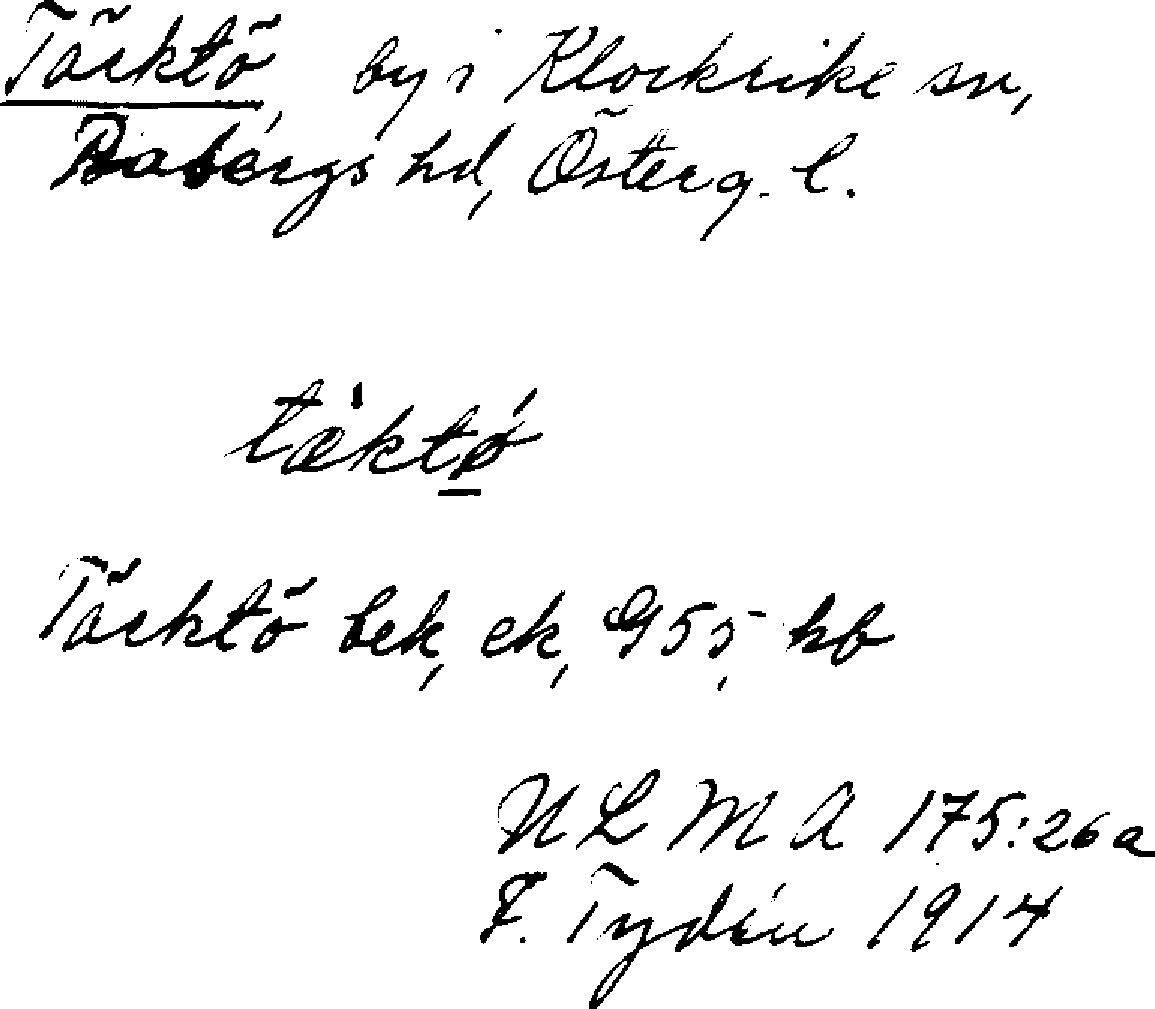 Täcktö, by i Klockrike sn,
Bobergs hd, Österg. l.
tæktǿ
Täcktö bek, ek, G55, hb
ULMA 175:26a
F. Tydén 1914